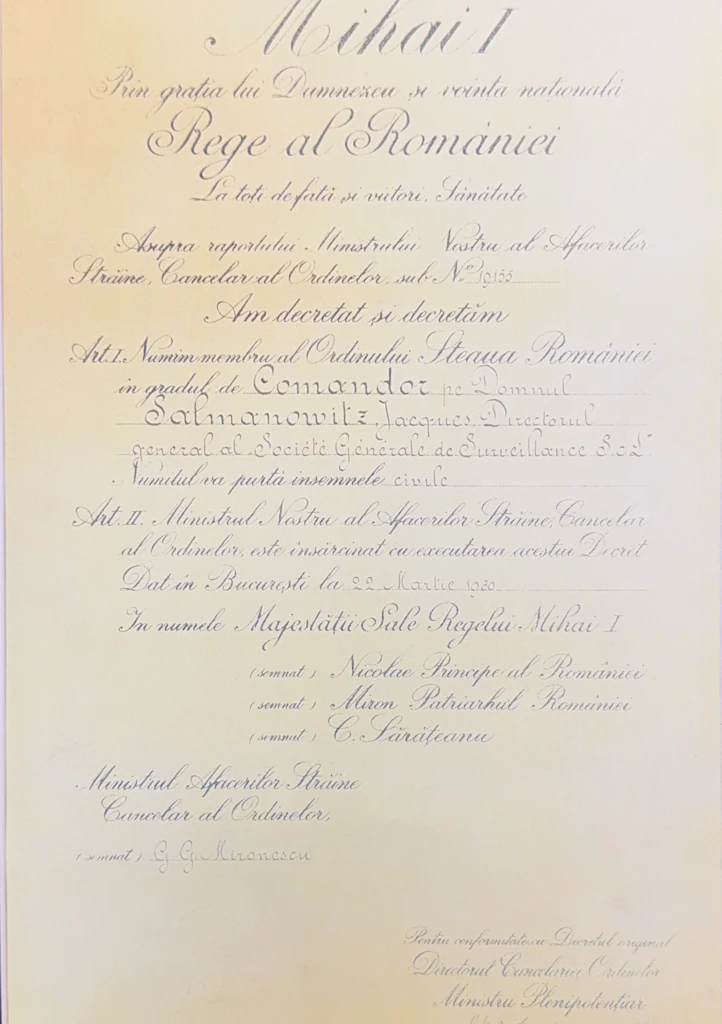 Mihai I
Prin grația lui Dumnezeu și voința națională
Rege al României
La toți de față și viitori, Sănătate
Asupra raportului Ministrului Nostru al Afacerilor
Străine, Cancelar al Ordinelor, sub No 10155
Am decretat și decretăm
Art. I. Numim membru al Ordinului Steaua României
în gradul de Comandor pe Domnul
Salmanowitz, Jacques, Directorul
general al Société Générale de Surveillance S.a L"
Numitul va purtà insemnele civile
Art. II. Ministrul Nostru al Afacerilor Străine, Cancelar
al Ordinelor, este însărcinat cu executarea acestui Decret
Dat în București la 22 Martie 1930
In numele Majestății Sale Regelui Mihai I
(semnat) Nicolae Principe al României
(semnat) Miron Patriarhul României
(semnat) C. Sărățeanu
Ministrul Afacerilor Străine
Cancelar al Ordinelor,
(semnat) G. G. Mironescu
Pentru conformitate cu Decretul original
Directorul Cancelariei Ordinelor
Ministru Plenipotențiar